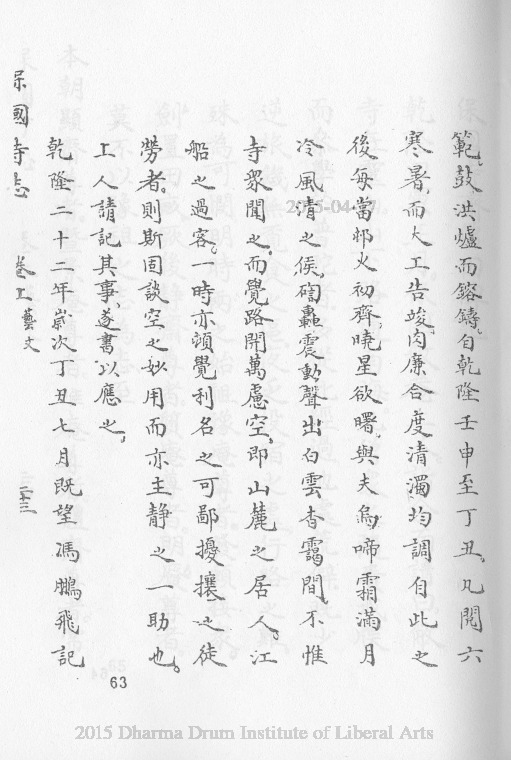 範。鼓洪爐而鎔鑄。自乾隆壬申至丁丑。凡閱六
寒暑。而大工告竣。肉廉合度清濁均調自此之
後每當邨火初齊。曉星欲曙。與夫烏啼霜滿月
冷風清之候。鞫轟震動聲出白雲杳靄間。不惟
寺眾聞之。而覺路開萬慮空。即山麓之居人。江
船之過客。一時亦頓覺利名之可鄙擾攘之徒
勞者。則斯固談空之妙用而亦主静之一助也。
工人請記其事。遂書以應之。
乾隆二十二年歲次丁丑七月既望馮鵬飛記
保國寺志 卷上 藝文 三十三
63
2015-04-
2015 Dharma Drum Institute of Liberal Arts